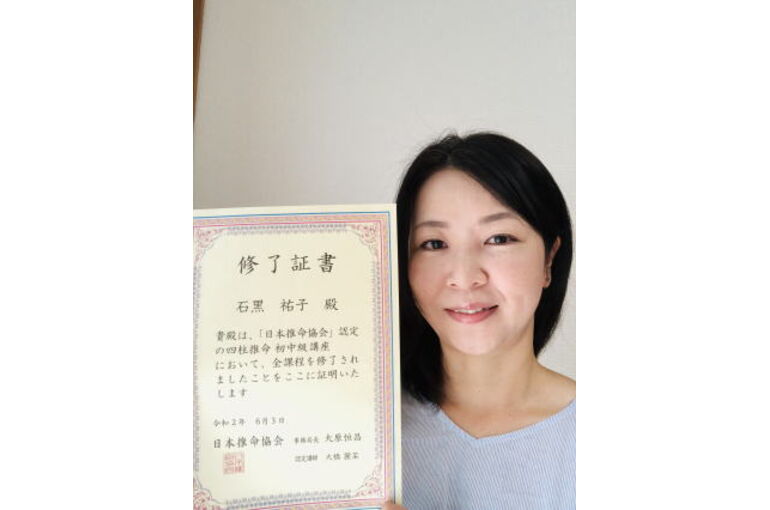 修了証書
石黒 祐子 殿
貴殿は、「日本推命協会」認定
の四柱推命 初中級講座
において、全課程を修了され
ましたことをここに証明いた
します
令和2年 6月3日
日本推命協会 事務局長 大原恒昌
認定講師 大橋